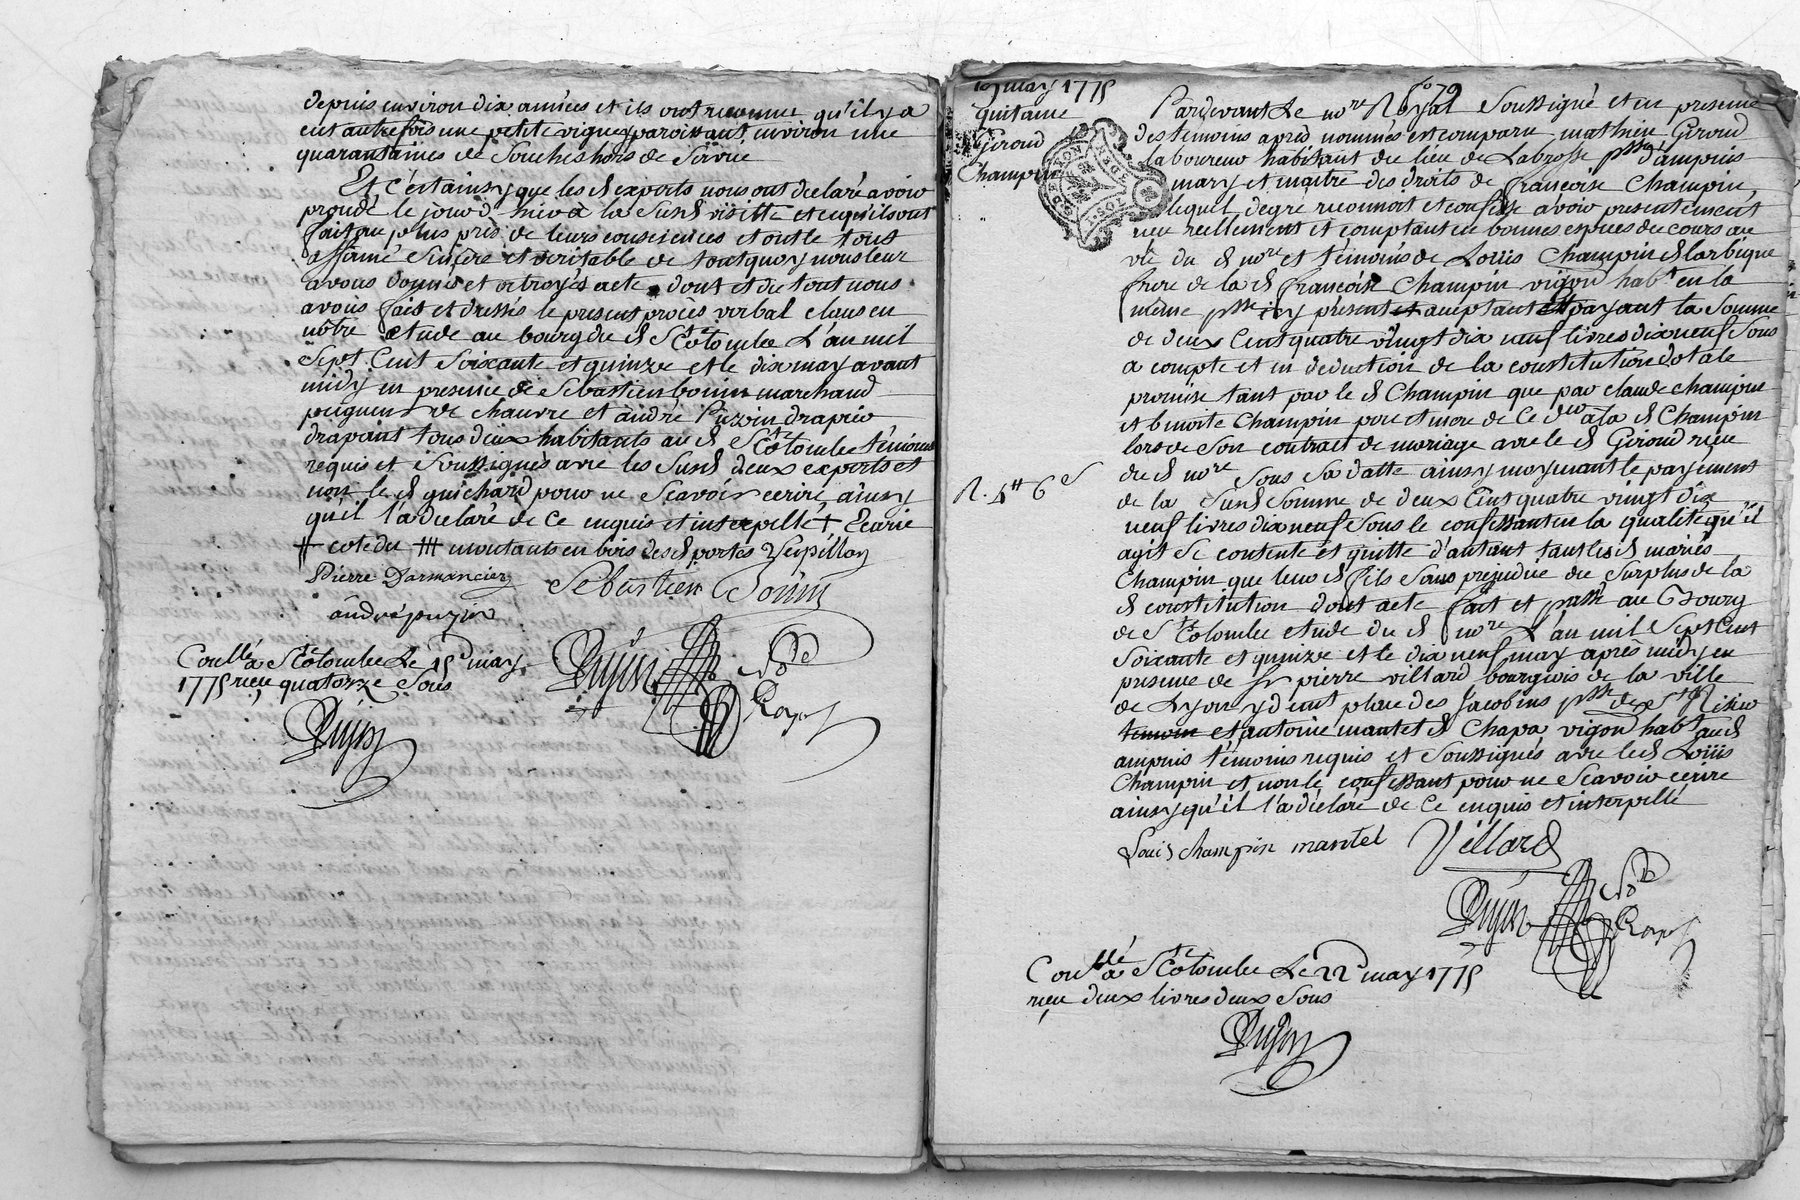 depuis environ dix années et ils ont reconnu qu'il y a
eut autrefois une petite vigne paroissant environ une
quarantaines de souches hors de servie
Et c'est ainsy que les d experts nous ont declaré avoir
procedé le jour d'hier à la susd visitte et ce qu'ils ont
fait au plus près de leurs consciences et ont le tout
affirmé sincère et veritable de tout quoy nous leur
avons donné et octroyés acte dont et du tout nous
avons fait et dressés le present procès verbal clans en
nôtre etude au bourg du d Ste Colombe L'an mil
Sept Cent Soixante et quinze et le dix may avant
midy en presence de Sebastien bonin marchand
peigneur de chanvre et andré Puzin drapier
drapant tous deux habitants au d Ste Colombe témoins
requis et soussignés avec les susd deux experts et
non le d guichard pour ne scavoir ecrire ainsy
qu'il l'a declaré de ce enquis et interpellé + Ecurie
+ coté du ⧻ montants en bois des d portes
Pierre Darmancier Sebastien Bonin
andré puzin
Conllé a Ste Colombe Le 15e may
1775 rieu quatorze sous
Dujon Nore
Royal
Dujon
19 may 1775
quitance
Giroud
Champin
fo 79
Pardevant Le nore Royal Soussigné et en presence
des témoins après nommés est comparu mathieu Giroud
laboureur habitant du lieu de Labrosse psse d'ampuis
mary et maitre des droits de françoise Champin
lequel degré reconnoit et confesse avoir presentement
receu reellement et comptant en bonnes espèces de cours au
vû du d nore et témoins de Loüis Champin d larbique
frere de la d françoise Champin vigon habt en la
même psse icy present et acceptant et payant la somme
de deux Cent quatre vingt dix neuf livres dix neuf sous
a compte et en deduction de la constitution dotale
promise tant par le d Champin que par claude champin
et benoite Champin pere et mere de ce der a la d Champin
lors de son contrat de mariage avec le d Giroud rieu
du d nore sous sa datte ainsy moyenant le payement
de la susd somme de deux Cent quatre vingt dix
R. 4# 6s
neuf livres dix neuf sous le confessant en la qualité qu'il
agit se contente et quitte d'autant tant les d mariés
Champin que leur d fils sans prejudice du surplus de la
d constitution dont acte fait et passé au Bourg
de Ste Colombe etude du d nore L'an mil Sept Cent
Soixante et quinze et le dix neuf may après midy en
presence de Sr pierre villard bourgeois de la ville
de Lyon y dent place des Jacobins psse de St Nisier
temoin et antoine mantet d Chapa vigon habt au d
ampuis témoins requis et soussignés avec le d Loüis
Champin et non le confessant pour ne scavoir ecrire
ainsy qu'il l'a declaré de ce enquis et interpellé
Louis champin mantel Villard
Dujon Nore
Royal
Conllé a Ste Colombe Le 22e may 1775
rieu deux livres deux sous
Dujon